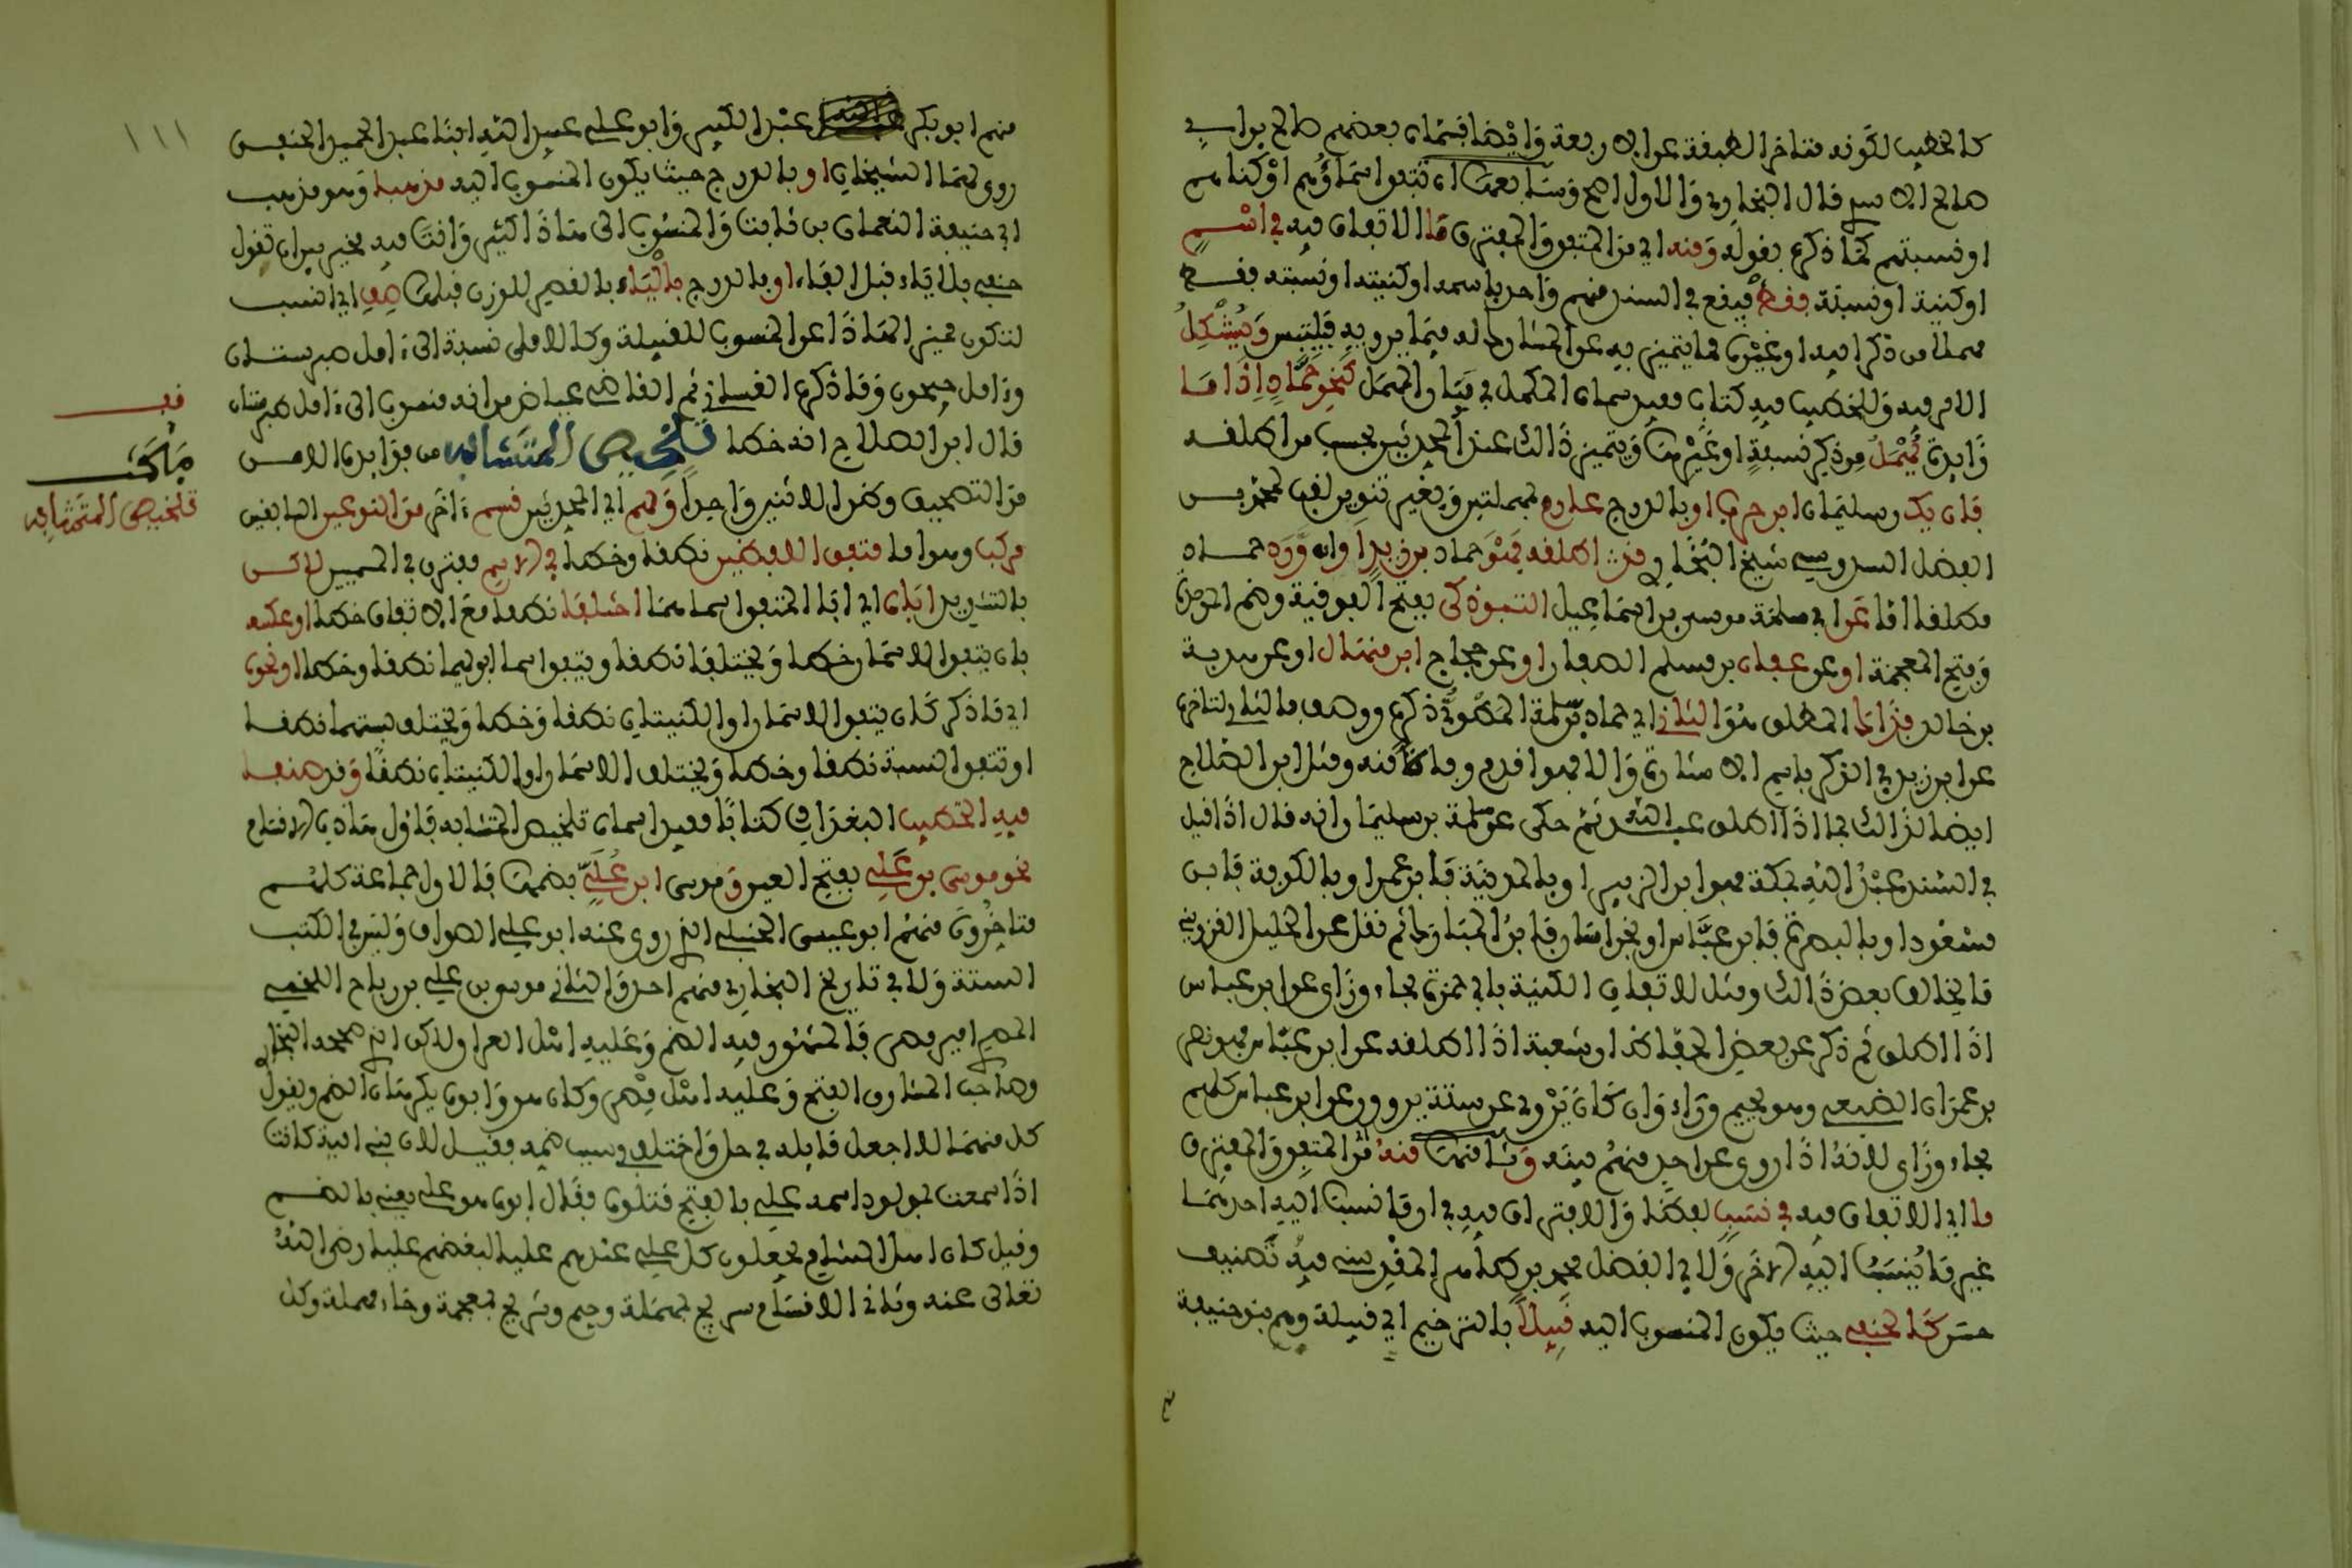 كالخطيب لكونه متاخر الطبقة عن الاربعة وايضا فسمان بعضهم صالح بن ابي
صالح الا سم قال البخاري والاول اصح وسابعها ان تتفق اسماؤهم او كناهم
او نسبتهم كما ذكره بقوله ومنه اي من المتفق والمفترق ما الاتفاق فيه في اسم
او كنية او نسبة فقط فيقع في السند منهم واحد باسمه او كنيته او نسبته فقط
مهملا من ذكر ابيه او غيره مما يتميز به عن المشارك له فيما يرويه فيلتبس ويشكل
الامر فيه وللخطيب فيه كتاب مفيد سماه المكمل في بيان المهمل كنحو حماد اذا ما
زايدة يهمل من ذكر نسبة او غيرها ويتميز ذالك عند المحدثين بحسب من اطلقه
فان يك سليمان ابن حرب او بالدرج عارم بمهملتين وبغير تنوين لقب لمحمد بن
الفضل السدوسي شيخ البخاري قد اطلقه فهو حماد بن زيد او ان ورد حماد
مطلقا اما عن ابي سلمة موسى بن اسماعيل التبوذكي بفتح الفوقية وضم الموحدة
وفتح المعجمة او عن عفان بن مسلم الصفار او عن حجاج ابن منهال او عن هدبة
بن خالد فذا المطلق هو الثاني اي حماد بن سلمة المطوي ذكره ووصف بالثاني لتاخره
عن ابن زيد في الذكر باسم الا شارة والا فهو اقدم وفاة منه ومثل ابن الصلاح
ايضا لذالك بما اذا اطلق عبد الله ثم حكى عن سلمة بن سليمان انه قال اذا قيل
في السند عبد الله بمكة فهو ابن الزبير او بالمدينة فابن عمر او بالكوفة فابن
مسعود او بالبصرة فابن عباس او بخراسان فابن المبارك ثم نقل عن الخليل القزويني
ما يخالف بعض ذالك ومثل للاتفاق الكنية بابي حمزة بحاء وزاي عن ابن عباس
اذا اطلق ثم ذكر عن بعض الحفاظ ان شعبة اذا اطلقه عن ابن عباس فهو نصر
بن عمران الضبعي وهو بجيم وراء وان كان يروي عن ستة يروون عن ابن عباس كلهم
بحاء وزاي لانه اذا روى عن احد منهم بينه وثامنها منه من المتفق والمفترق
ما اي الاتفاق فيه في نسب لفظا والافتراق فيه في ان ما نسب اليه احدهما
غير ما ينسب اليه الاخر ولابي الفضل محمد بن طاهر المقدسي فيه تصنيف
حسن كالحنفي حيث يكون المنسوب اليه قبيلا بالترخيم اي قبيلة وهم بنو حنيفة
منهم
منهم ابو بكر عبد الكبير وابو علي عبيد الله ابنا عبد المجيد الحنفي
روى لهما الشيخان او بالدرج حيث يكون المنسوب اليه مذهبا وهو مذهب
ابي حنيفة النعمان بن ثابت والمنسوب الى هاذا كثير وانت فيه مخير بين ان تقول
حنفي بلا ياء قبل الفاء او بالدرج بالياء بالقصر للوزن قبلها صف اي انسب
لتكون مميز الهاذا عن المنسوب للقبيلة وكالاملي نسبة الى ءامل طبرستان
وءامل جيحون وما ذكره الغساني ثم القاضي عياض من انه منسوب الى ءامل طبرستان
قال ابن الصلاح انه خطا تلخيص المتشابه من فوائده الامن
من التصحيف وظن الاثنين واحدا ولهم اي المحدثين قسم ءاخر من النوعين السابقين
مركب وهو اما متفق اللفظين نطقا وخطا في الاسم مفترق في المسميين لاكن
بالتشديد اباه اي ابا المتفق اسماهما اختلفا نطقا مع الا تفاق خطا او عكسه
بان يتفق الاسمان خطا ويختلفا نطقا ويتفق اسما ابويهما نطقا وخطا او نحوه
اي ما ذكر كان يتفق الاسمان او الكنيتان نطقا وخطا ويختلف نسبتهما نطقا
او تتفق النسبة نطقا وخطا ويختلف الاسمان او الكنيتان نطقا وقد صنفا
فيه الخطيب البغدادي كتابا مفيدا سماه تلخيص المتشابه فاول هاذه الاقسام
نحو موسى بن علي بفتح العين وموسى ابن علي بضمها فالاول جماعة كلهم
متاخرون منهم ابو عيسى الختلي الذي روى عنه ابو علي الصواف وليس في الكتب
الستة ولا في تاريخ البخاري منهم احد والثاني موسى بن علي بن رباح اللخمي
المصري امير مصر فالمشهور فيه الضم وعليه اهل العراق ولاكن الذي صححه البخاري
وصاحب المشارق الفتح وعليه اهل مصر وكان هو وابوه يكرهان الضم ويقول
كل منهما لا اجعل قايله في حل واختلف في سبب ضمه فقيل لان بني امية كانت
اذا سمعت بمولود اسمه علي بالفتح قتلوه فقال ابوه هو علي يعني بالضم
وقيل كان اهل الشام يجعلون كل علي عندهم عليا لبغضهم عليا رضي الله
تعالى عنه وثاني الاقسام سريج بمهملة وجيم وشريح بمعجمة وحاء مهملة وكل
١١١
قف
تلخيص المتشابه